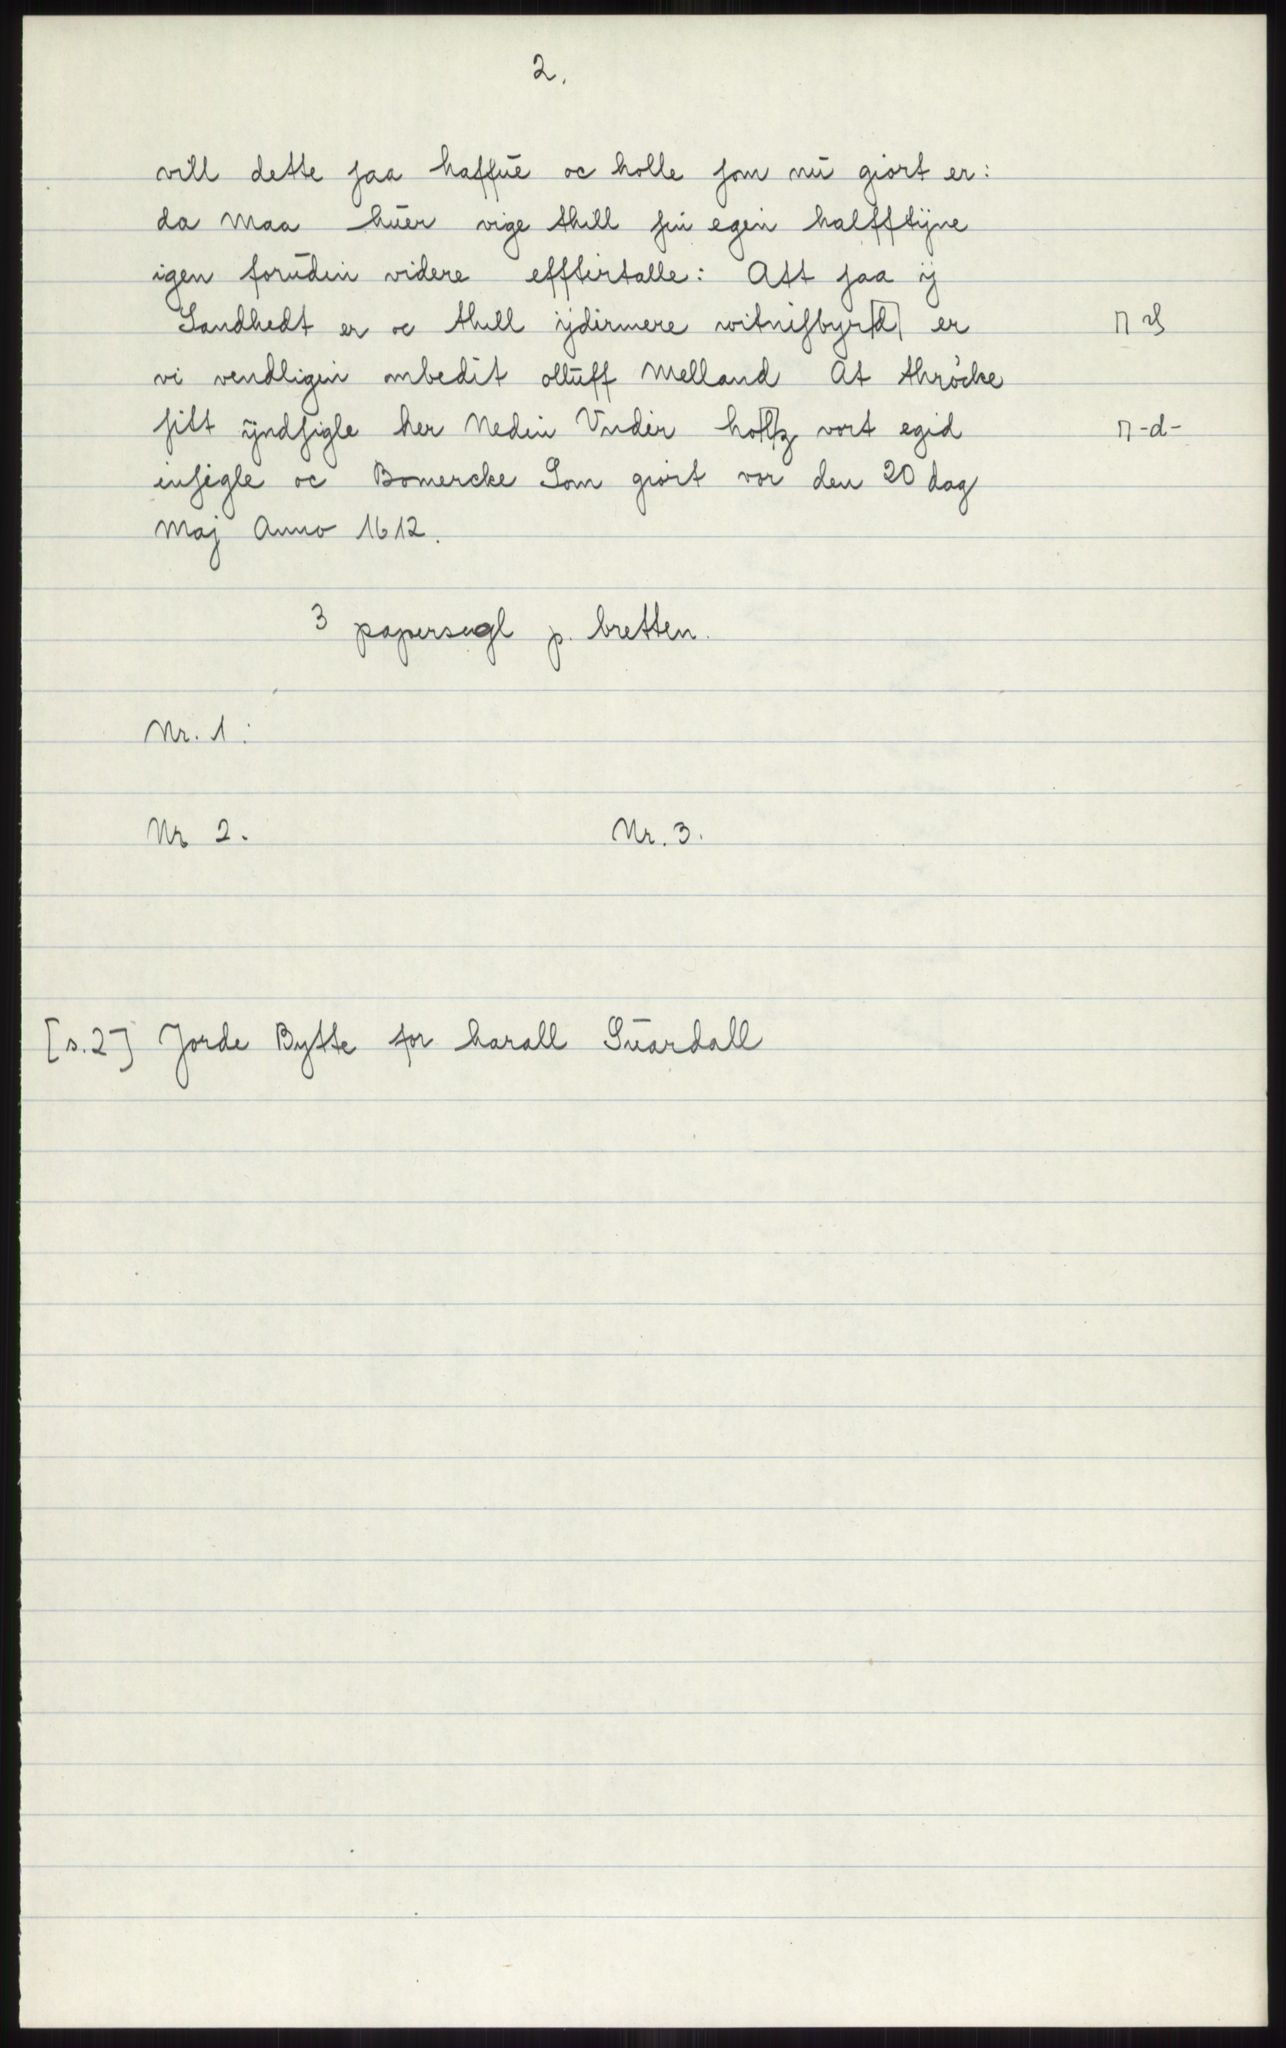 2.
vill dette ſaa haffūe oc holle ſom nū giort er:
da maa hūer vige thill ſin egen halfftÿne
igen forūden videre efftertalle: Att ſaa ij
Sandhedt er oc thill ijdermere witniſbyr[d] er
vi vendligen ombedit olluff Melland At thröcke
ſitt ÿndſigle her Neden Vnder ho[ſ]z vort egid
inſegle oc Bomercke Som giort vor den 20 dag
Maj Anno 1612.
-d-
3 papersegl p. bretten.
Nr. 1:
Nr 2. Nr. 3.
[s.2] Jorde Bytte for harall Sūardall